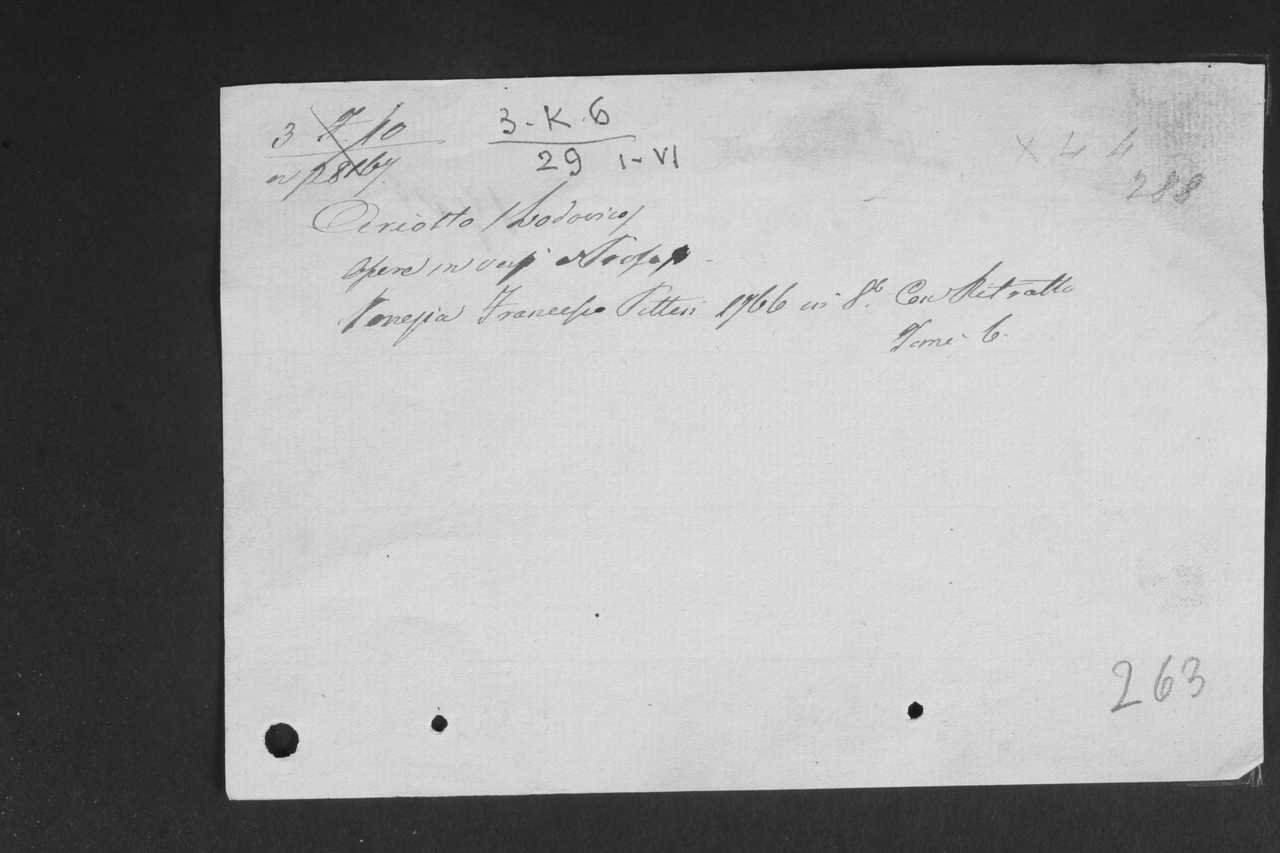 3 7. 10
3-K.6
29 I-VI
X 4 4
288
Ariosto (Lodovico)
Opere in versi e Prosa
Venezia Francesco Pitteri 1766 in 8.º Con Ritratto
Tomi 6.
263